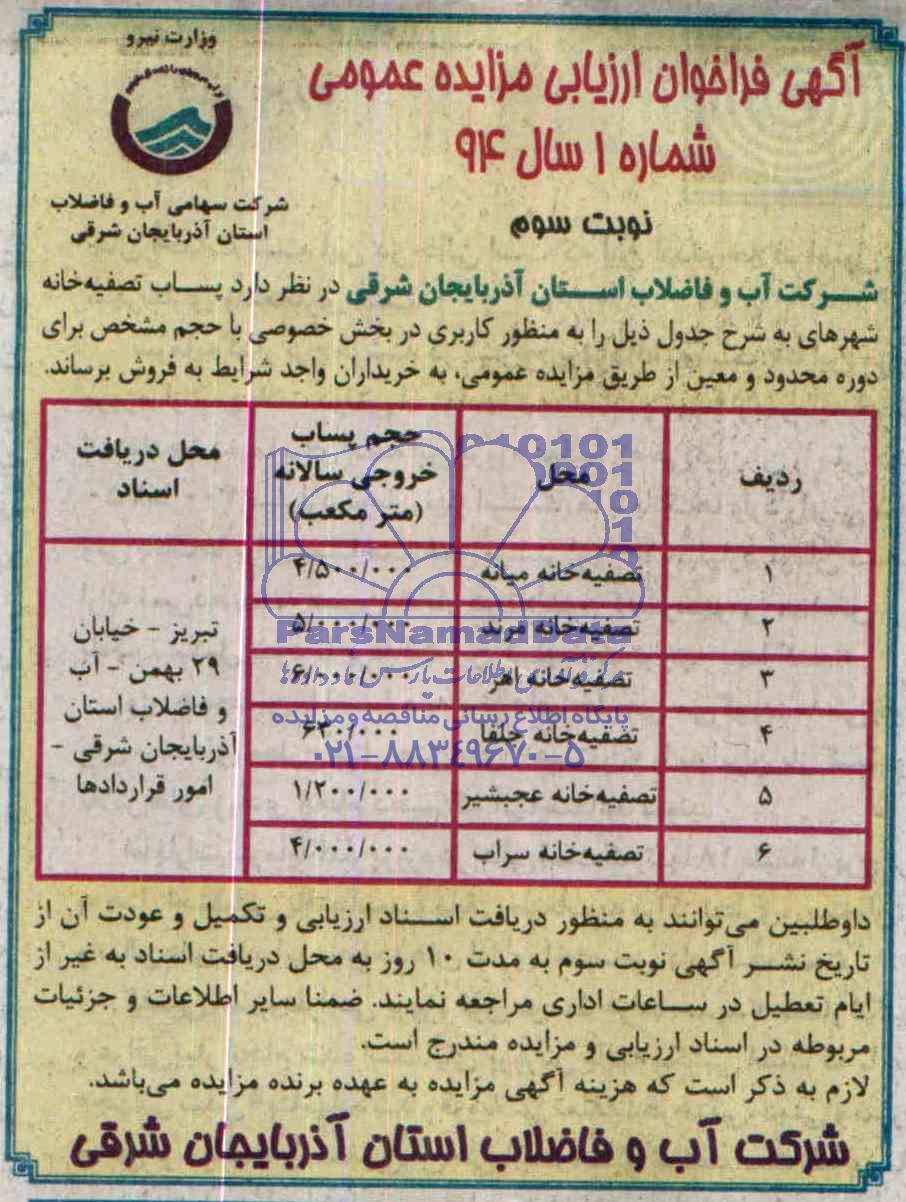 وزارت نیرو
شرکت سهامی آب و فاضلاب
استان آذربایجان شرقی
آگهی فراخوان ارزیابی مزایده عمومی
شماره ۱ سال ۹۴
نوبت سوم
شرکت آب و فاضلاب استان آذربایجان شرقی در نظر دارد پساب تصفیه‌خانه
شهرهای به شرح جدول ذیل را به منظور کاربری در بخش خصوصی با حجم مشخص برای
دوره محدود و معین از طریق مزایده عمومی، به خریداران واجد شرایط به فروش برساند.
ردیف محل حجم پساب خروجی سالانه (متر مکعب) محل دریافت اسناد
۱ تصفیه‌خانه میانه ۴/۵۰۰/۰۰۰
۲ تصفیه‌خانه مرند ۵/۰۰۰/۰۰۰
۳ تصفیه‌خانه اهر ۶/۰۰۰/۰۰۰
۴ تصفیه‌خانه جلفا ۶۳۰/۰۰۰
۵ تصفیه‌خانه عجبشیر ۱/۲۰۰/۰۰۰
۶ تصفیه‌خانه سراب ۴/۰۰۰/۰۰۰
تبریز - خیابان
۲۹ بهمن - آب
و فاضلاب استان
آذربایجان شرقی -
امور قراردادها
داوطلبین می‌توانند به منظور دریافت اسناد ارزیابی و تکمیل و عودت آن از
تاریخ نشر آگهی نوبت سوم به مدت ۱۰ روز به محل دریافت اسناد به غیر از
ایام تعطیل در ساعات اداری مراجعه نمایند. ضمنا سایر اطلاعات و جزئیات
مربوطه در اسناد ارزیابی و مزایده مندرج است.
لازم به ذکر است که هزینه آگهی مزایده به عهده برنده مزایده می‌باشد.
شرکت آب و فاضلاب استان آذربایجان شرقی
ParsNamadData
پایگاه اطلاع رسانی مناقصه و مزایده
۰۲۱-۸۸۳۴۹۶۷۰-۵